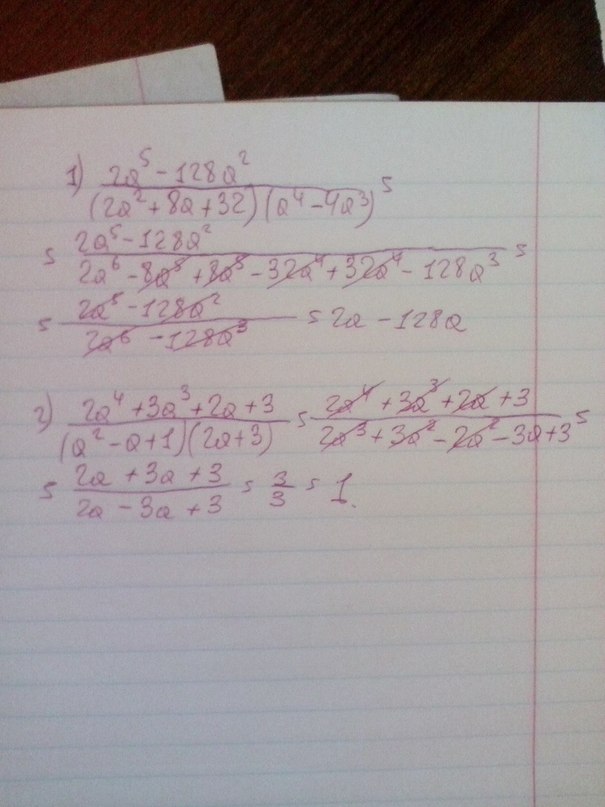 1) (2a⁵ - 128a²) / ((2a² + 8a + 32)(a⁴ - 4a³)) =
= (2a⁵ - 128a²) / (2a⁶ - 8a⁵ + 8a⁵ - 32a⁴ + 32a⁴ - 128a³) =
= (2a⁵ - 128a²) / (2a⁶ - 128a³) = 2a - 128a
2) (2a⁴ + 3a³ + 2a + 3) / ((a² - a + 1)(2a + 3)) = (2a⁴ + 3a³ + 2a + 3) / (2a³ + 3a² - 2a² - 3a + 3) =
= (2a + 3a + 3) / (2a - 3a + 3) = 3/3 = 1.